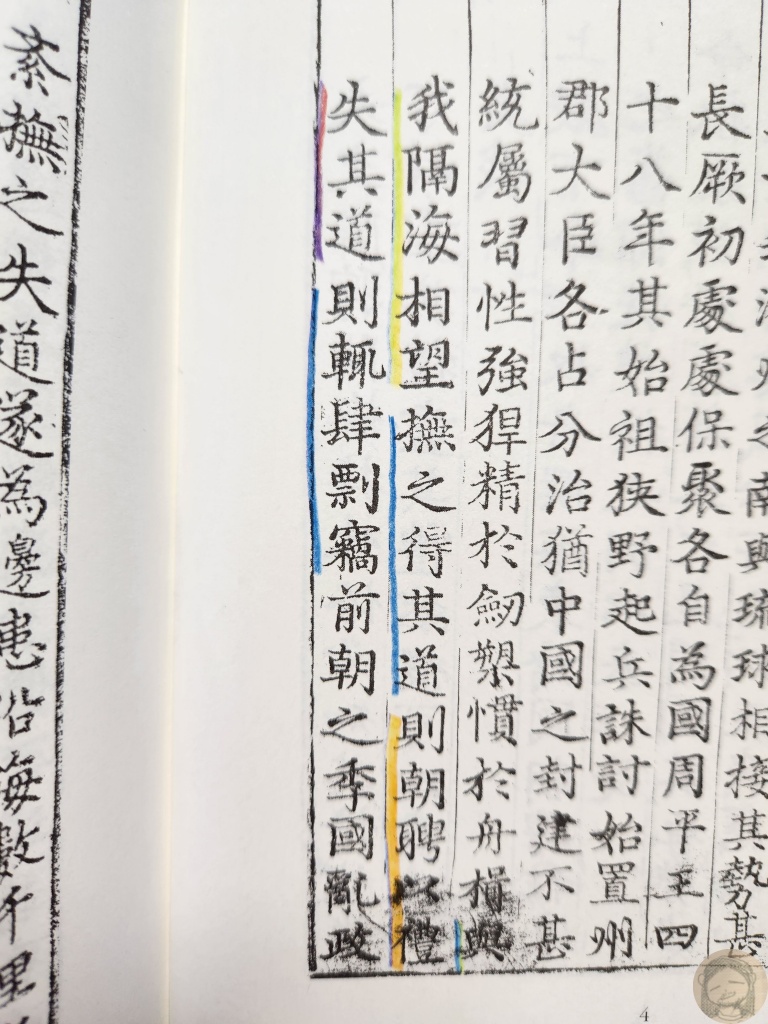 濟州之南與琉球相接其勢甚
長厥初處處保聚各自為國周平王四
十八年其始祖狹野起兵誅討始置州
郡大臣各占分治猶中國之封建不甚
統屬習性強猂精於劒槊慣於舟楫與
我隔海相望撫之得其道則朝聘以禮
失其道則輒肆剽竊前朝之季國亂政
紊撫之失道遂為邊患沿海數千里
4